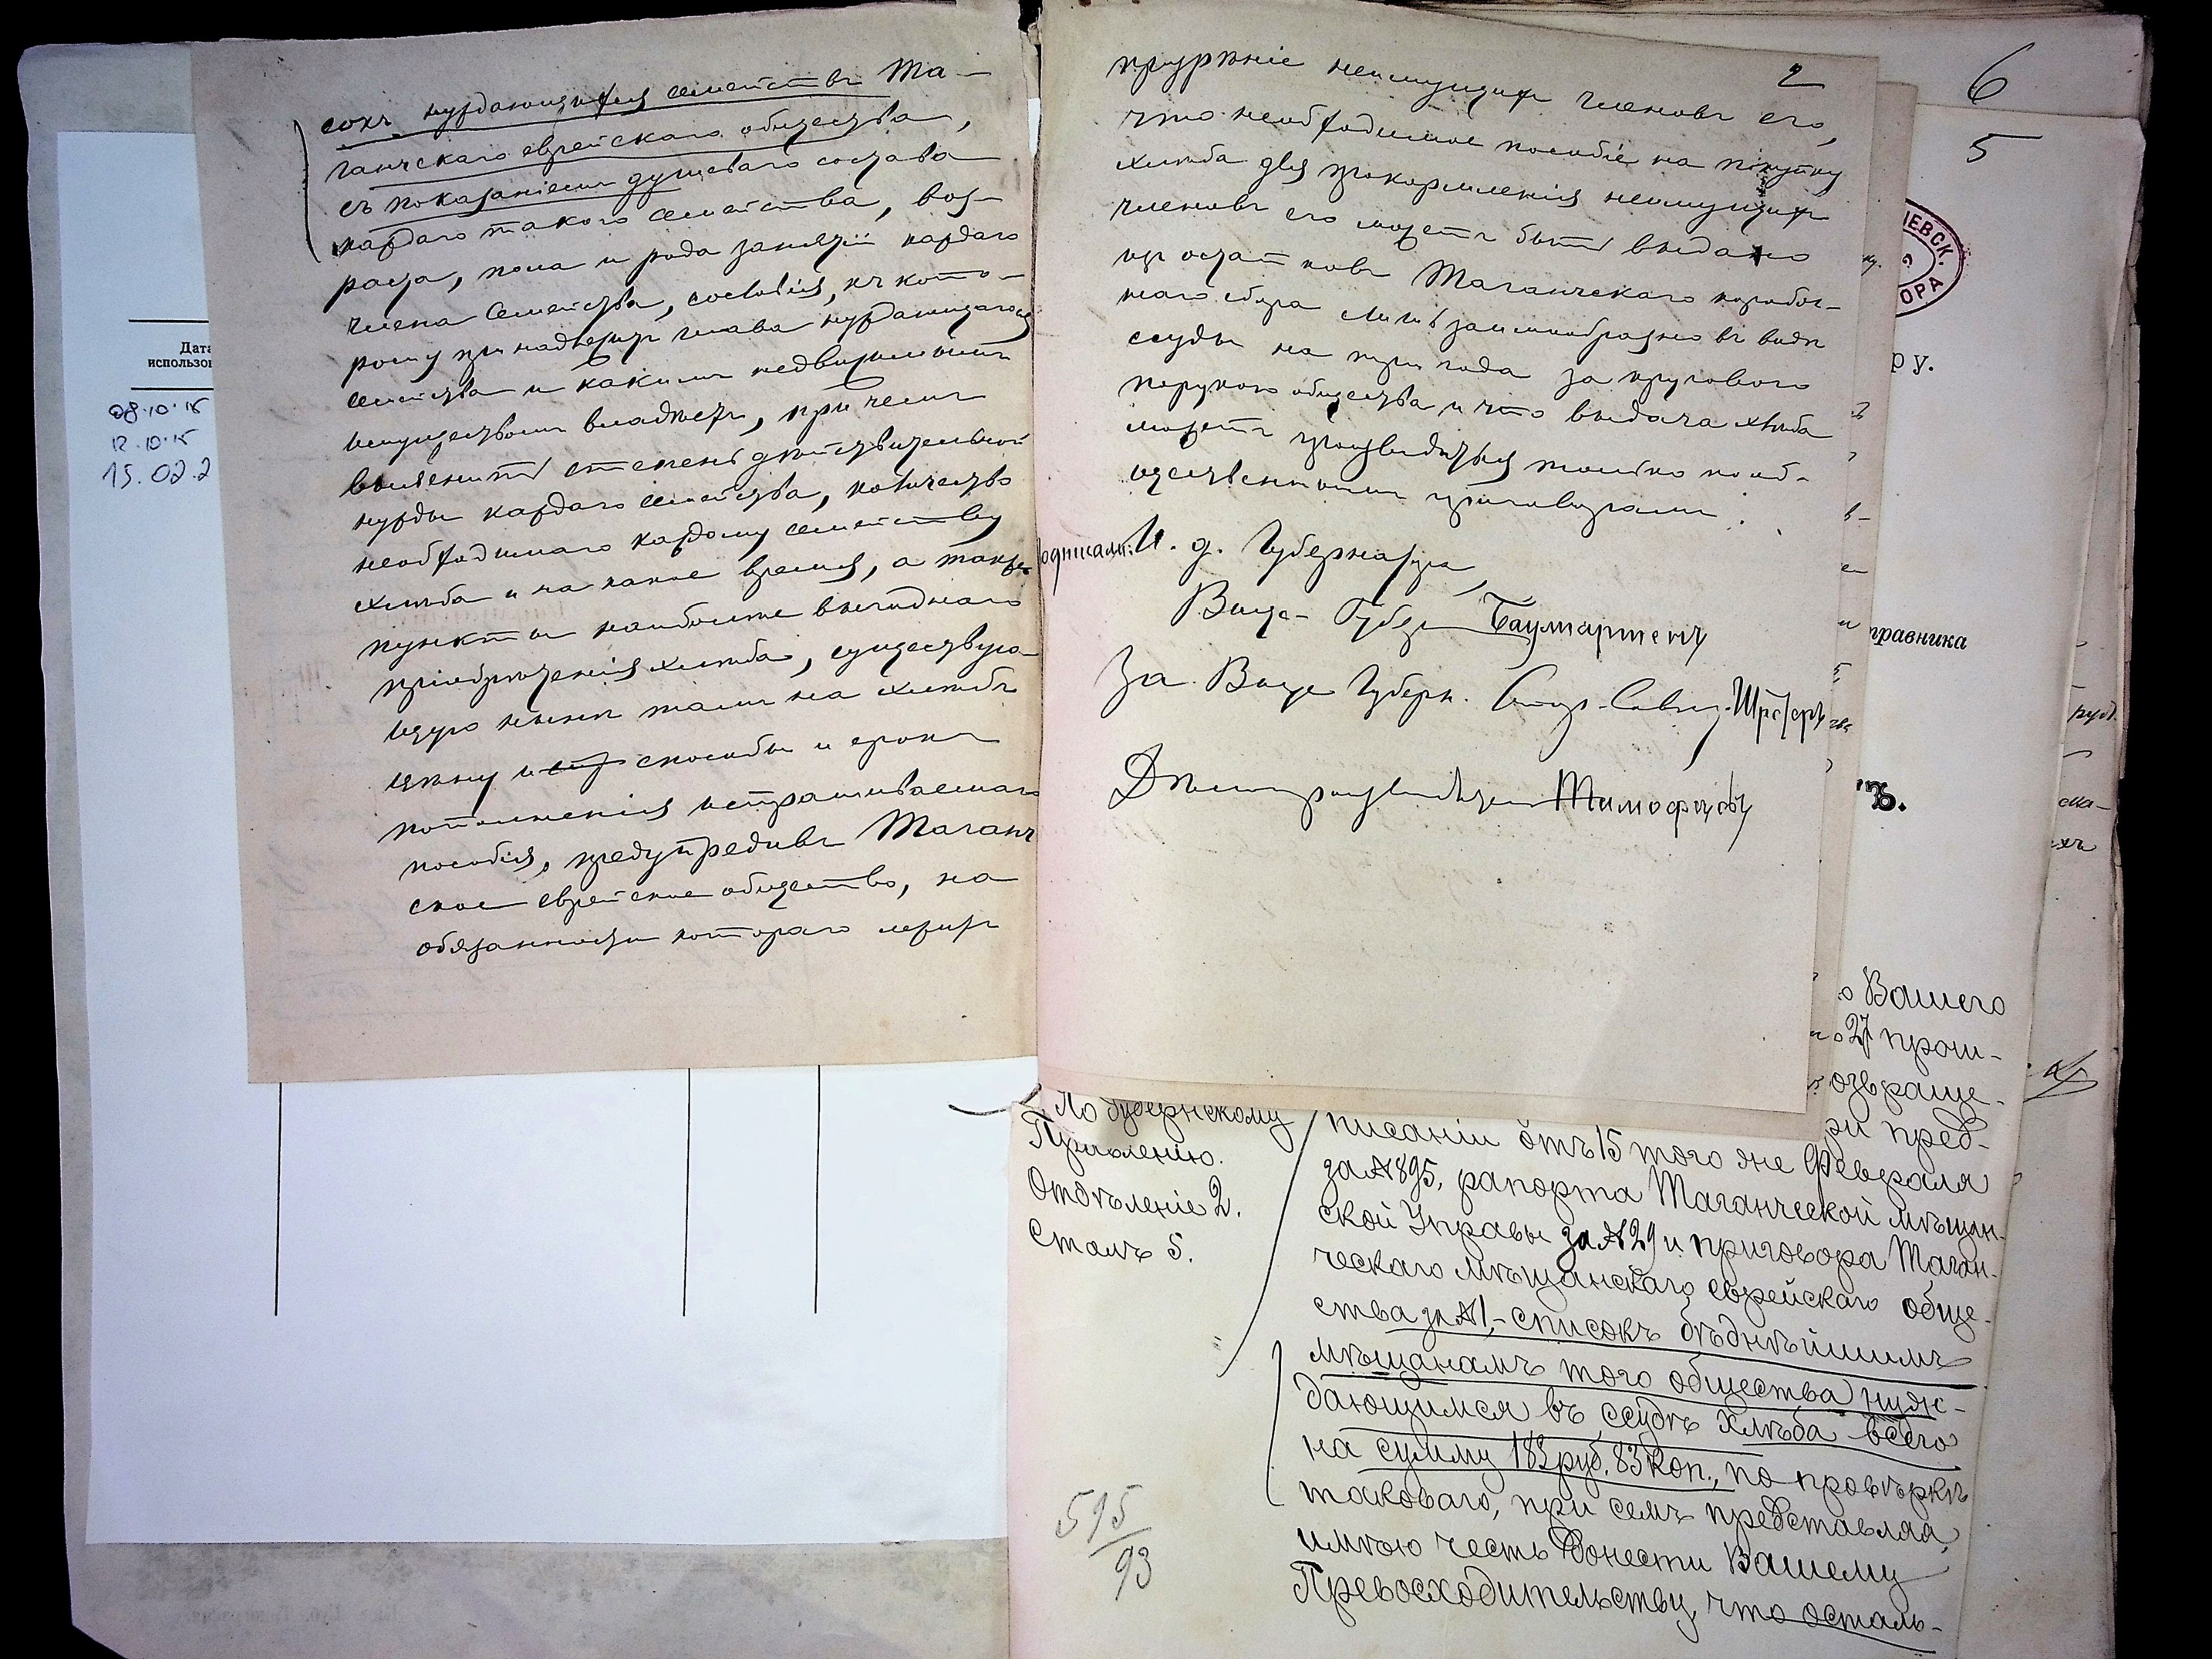 сокъ нуждающихся семействъ Та-
ганчскаго еврейскаго общества,
съ показаніемъ душеваго состава
каждаго такого семейства, воз-
раста, пола и рода занятій каждаго
члена семейства, сословія, къ кото-
рому принадлежитъ глава нуждающагося
семейства и какимъ недвижимымъ
имуществомъ владѣетъ, при чемъ
выяснить степень дѣйствительной
нужды каждаго семейства, количество
необходимаго каждому семейству
хлѣба и на какое время, а также
пункты наиболѣе выгоднаго
пріобрѣтенія хлѣба, существую-
щую нынѣ тамъ на хлѣбъ
цѣну и способы и сроки
пополненія испрашиваемаго
пособія, предупредивъ Таганч
ское еврейское общество, на
обязанности котораго лежитъ
2
призрѣніе неимущихъ членовъ его,
что необходимое пособіе на покупку
хлѣба для прокормленія неимущихъ
членовъ его можетъ быть выдано
изъ остатковъ Таганчскаго коробоч-
наго сбора лишь заимообразно въ видѣ
ссуды на три года за круговою
порукою общества и что выдача хлѣба
можетъ производиться только по об-
щественнымъ приговорамъ.
одписали: И. д. Губернатора,
Вице-Губер Баумгартенъ
За Вице Губерн. Стар. Совѣт.
Дѣлопроизводитель Тимофѣевъ
Дата
использо
08.10.15
12.10.15
15.02.2
6
5
ИЕВСК.
ОРА
ру.
правника
ъ.
руб.
Вашего
27 прош-
озвраще-
ри пред-
По Губернскому
Правленію.
Отдѣленіе 2.
Столъ 5.
595
93
писаніи отъ 15 того же Февраля
за № 895, рапорта Таганчской мѣщан-
ской Управы за № 29 и приговора Таган-
ческаго мѣщанскаго еврейскаго обще-
ства за № 1,- списокъ бѣднѣйшимъ
мѣщанамъ того общества нуж-
дающимся въ ссудѣ хлѣба всего
на сумму 183 руб. 83 коп., по провѣркѣ
таковаго, при семъ представляя,
имѣю честь донести Вашему
Превосходительству, что осталь-